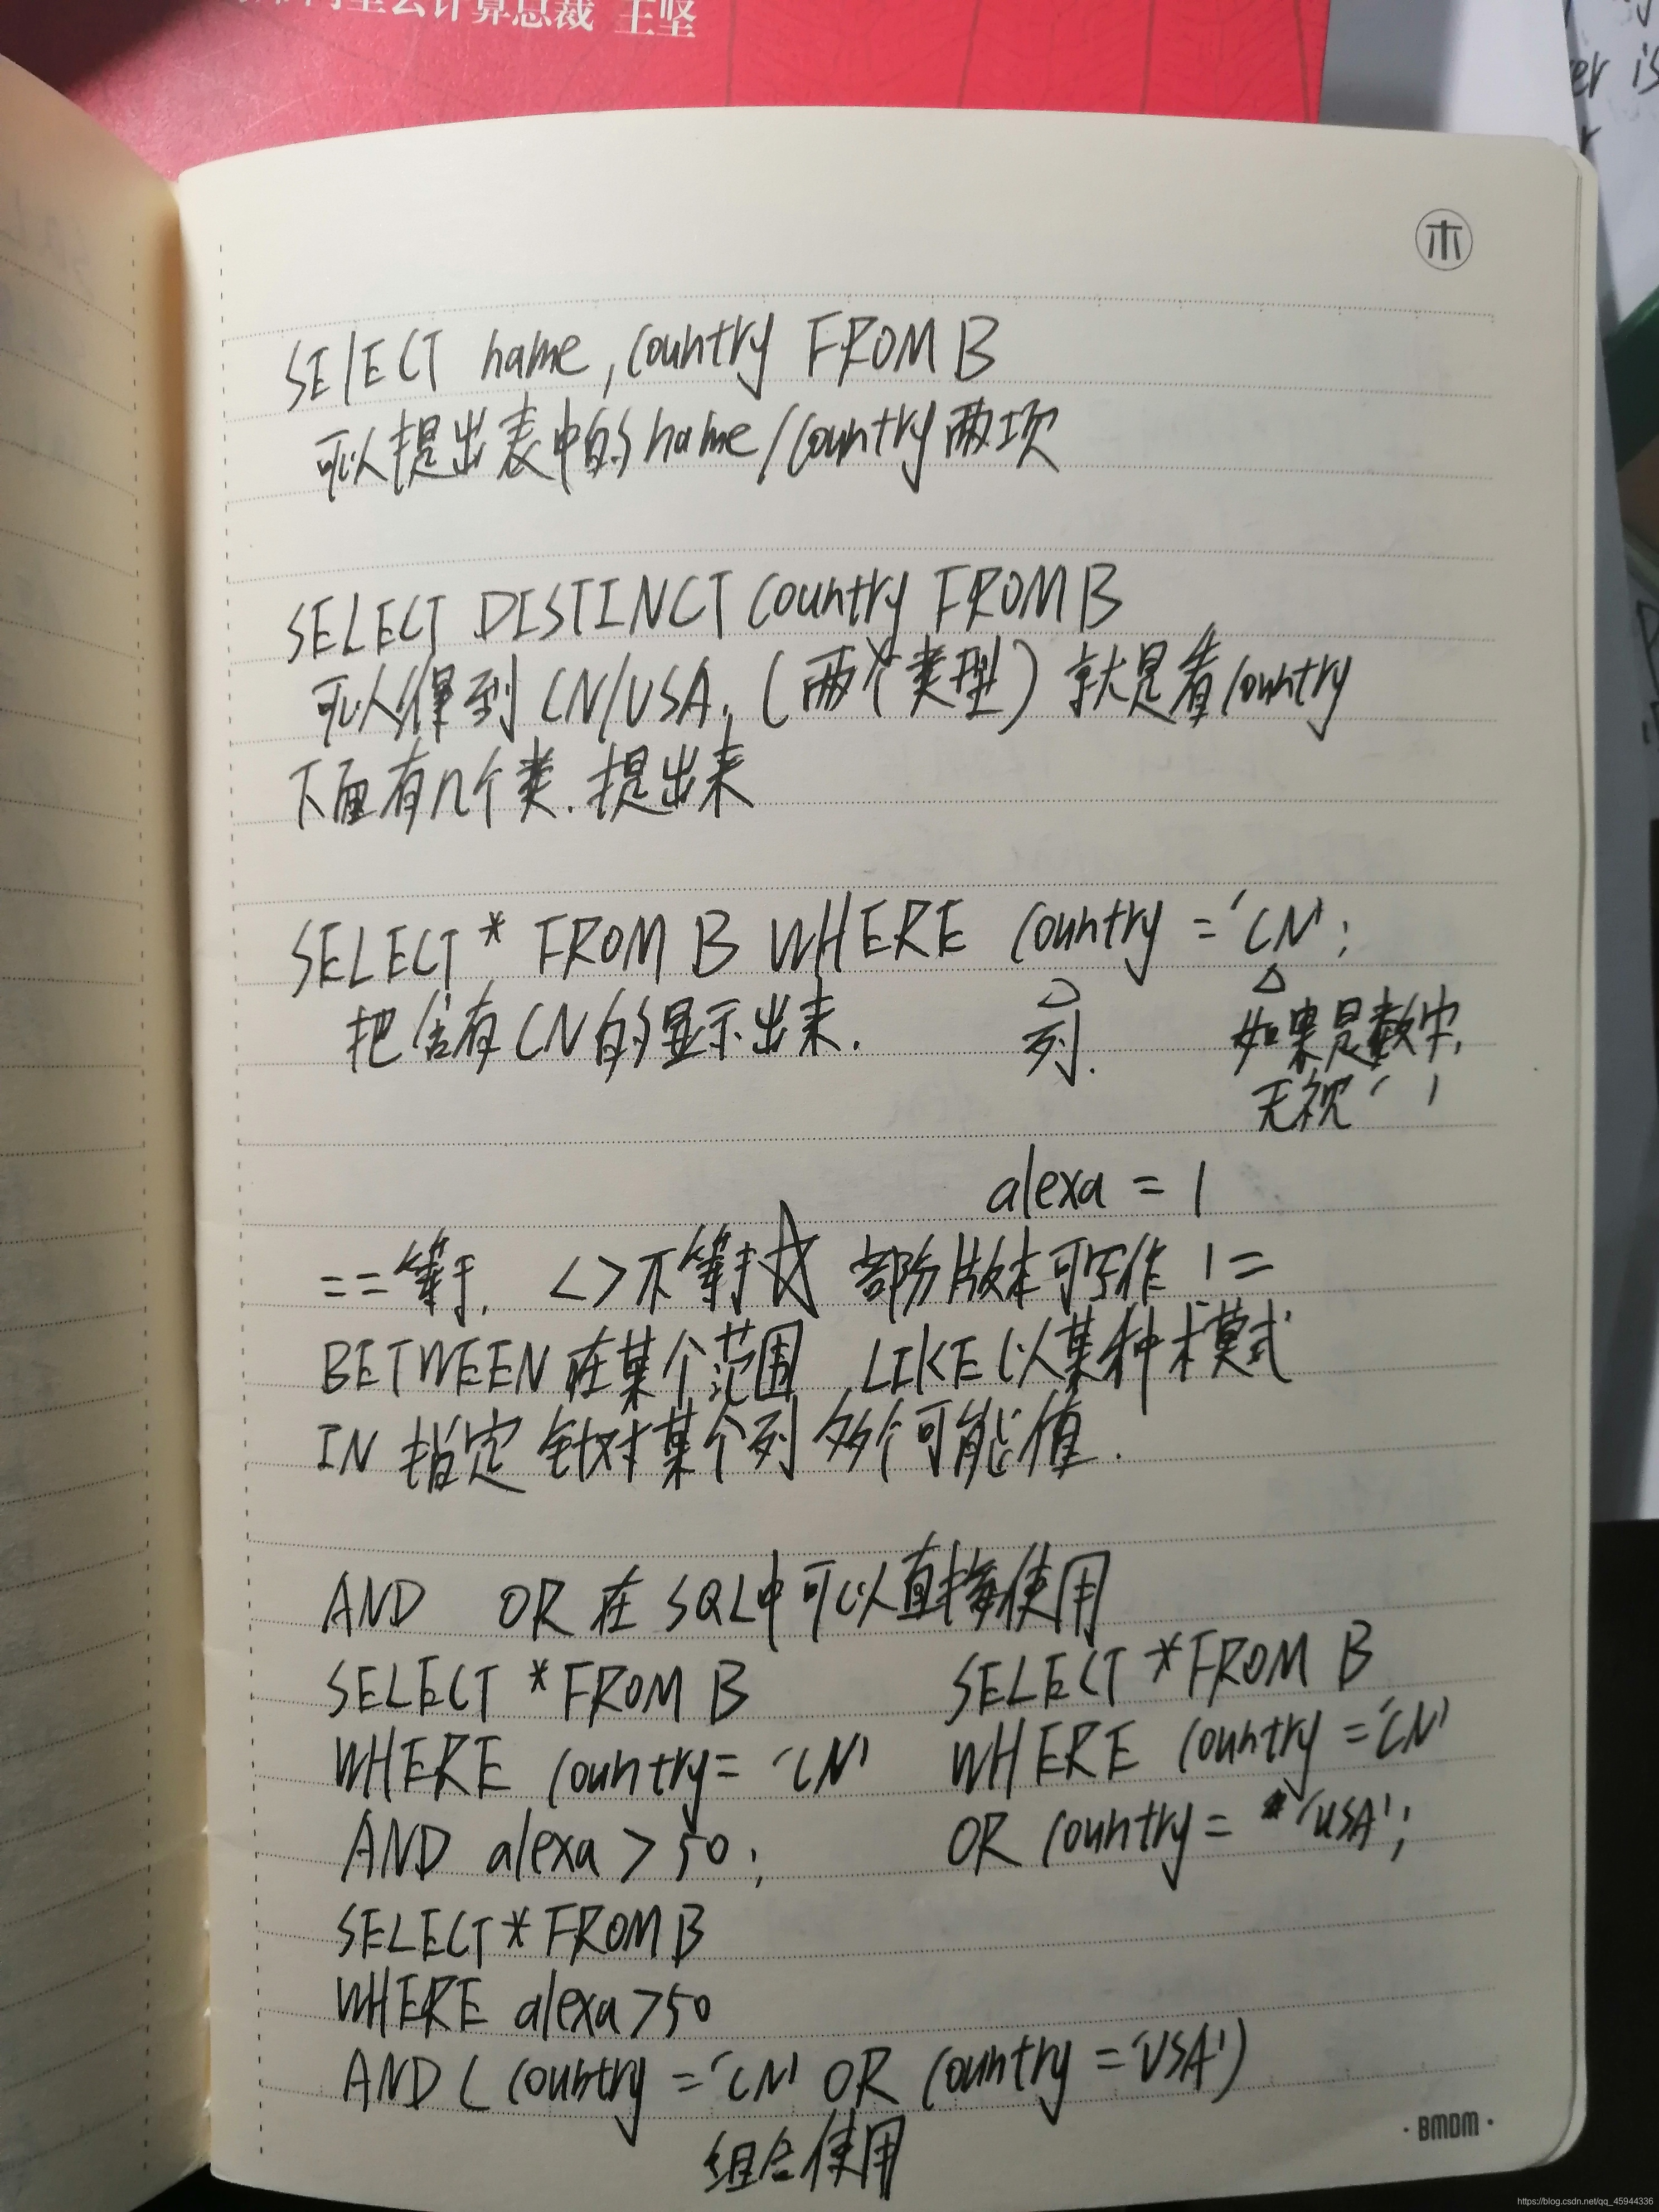 云计算总裁 王坚
er is
木
SELECT name, country FROM B
可以提出表中的name/country两项
SELECT DISTINCT country FROM B
可以得到CN/USA.(两个类型)就是看country
下面有几个类.提出来
SELECT * FROM B WHERE country = 'CN';
把含有CN的显示出来.
列.
如果是数字,
无视' '
alexa = 1
== 等于. <> 不等于 部分版本可写作 !=
BETWEEN 在某个范围 LIKE 以某种模式
IN 指定 针对某个列 多个可能值.
AND OR 在 SQL中可以直接使用
SELECT * FROM B
WHERE country = 'CN'
AND alexa > 50;
SELECT * FROM B
WHERE country = 'CN'
OR country = 'USA';
SELECT * FROM B
WHERE alexa > 50
AND ( country = 'CN' OR country = 'USA')
组合使用
·BMDM·
https://blog.csdn.net/qq_45944336